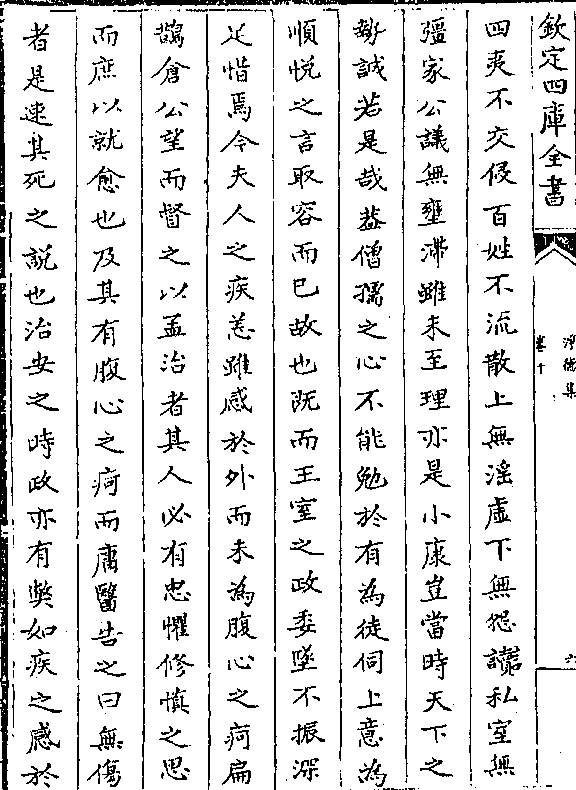 欽定四庫全書
淨德集
卷十
六
四夷不交侵百姓不流散上無淫虛下無怨讟私室無
彊家公議無壅滯雖未至理亦是小康豈當時天下之
勢誠若是哉蓋僧孺之心不能勉於有為徒伺上意為
順悦之言取容而已故也既而王室之政委墜不振深
足惜焉今夫人之疾恙雖感於外而未為腹心之疴扁
鵲倉公望而督之以孟治者其人必有忠懼修慎之思
而庶以就愈也及其有腹心之疴而庸醫告之曰無傷
者是速其死之説也治安之時政亦有弊如疾之感於